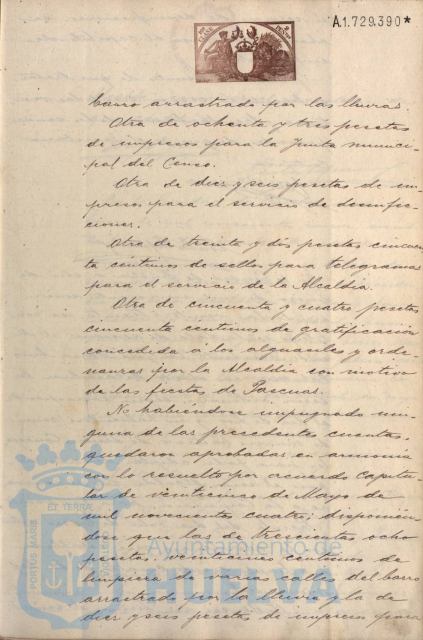 A.1.729.390*
barro arrastrado por las lluvias.
Otra de ochenta y tres pesetas
de impresos para la Junta munici-
pal del Censo.
Otra de diez y seis pesetas de im-
presos para el servicio de desinfec-
ciones.
Otra de treinta y dos pesetas cincuen-
ta céntimos de sellos para telegramas
para el servicio de la Alcaldía.
Otra de cincuenta y cuatro pesetas
cincuenta centimos de gratificación
concedida á los alguaciles y orde-
nanzas por la Alcaldía con motivo
de las fiestas de Pascuas.
No habiéndose impugnado nin-
guna de las precedentes cuentas,
quedaron aprobadas en armonía
con lo resuelto por acuerdo Capitu-
lar de veinticinco de Mayo de
mil novecientos cuatro, disponién-
dose que las de trescientas ocho
pesetas, centimos de
limpieza de varias calles del barro
arrastrado por la lluvia y la de
diez y seis pesetas de impresos para
PORTUS MARIS ET TERRAE
Ayuntamiento de
HUELVA